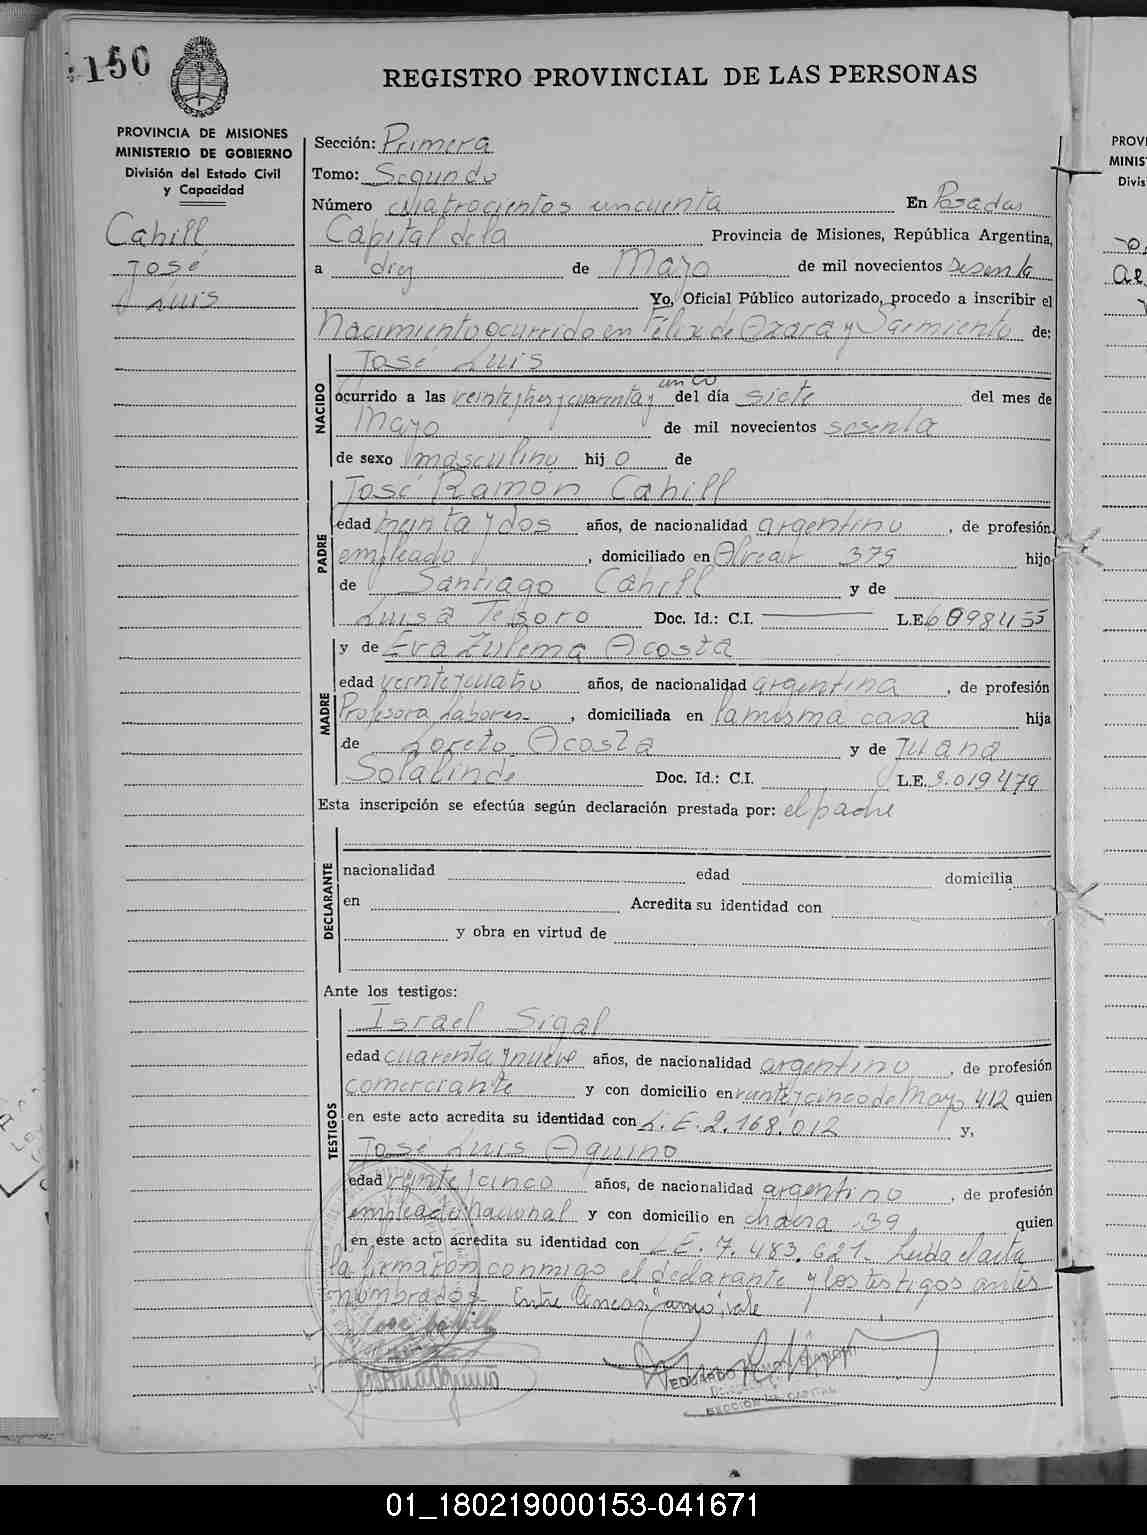 150
REGISTRO PROVINCIAL DE LAS PERSONAS
PROVINCIA DE MISIONES
MINISTERIO DE GOBIERNO
División del Estado Civil
y Capacidad
Cahill
José
Luis
Sección: Primera
Tomo: Segundo
Número cuatrocientos cincuenta En Posadas
Capital de la Provincia de Misiones, República Argentina,
a diez de Mayo de mil novecientos sesenta
Yo, Oficial Público autorizado, procedo a inscribir el
Nacimiento ocurrido en Félix de Azara y Sarmiento de:
NACIDO
José Luis
unco
ocurrido a las veintitres y cuarenta y del día siete del mes de
Mayo de mil novecientos sesenta
de sexo masculino hijo de
PADRE
José Ramón Cahill
edad treinta y dos años, de nacionalidad argentino, de profesión
empleado, domiciliado en Alvear 379 hijo
de Santiago Cahill y de
Luisa Tesoro Doc. Id.: C.I. L.E.
MADRE
y de Eva Zulema Acosta
edad veinticuatro años, de nacionalidad argentina, de profesión
Profesora Labores, domiciliada en la misma casa hija
de Loreto Acosta y de Juana
Solalinde Doc. Id.: C.I. L.E. 3.019479
Esta inscripción se efectúa según declaración prestada por: el padre
DECLARANTE
nacionalidad edad domicilia
en Acredita su identidad con
y obra en virtud de
Ante los testigos:
TESTIGOS
Israel Sigal
edad cuarenta y nueve años, de nacionalidad argentino, de profesión
comerciante y con domicilio en veinticinco de Mayo 412 quien
en este acto acredita su identidad con L.E. 2.168.012 y,
José Luis Aquino
edad veinticinco años, de nacionalidad argentino, de profesión
empleado nacional y con domicilio en chacra 39 quien
en este acto acredita su identidad con L.E. 7.483.621. Leida el acta
la firmaron conmigo el declarante y los testigos antes
nombrados. Entre lineas: vale
José Cahill
EDUARDO
SECCION 1a. CAPITAL
PROVI
MINIS
Divis
01_180219000153-041671